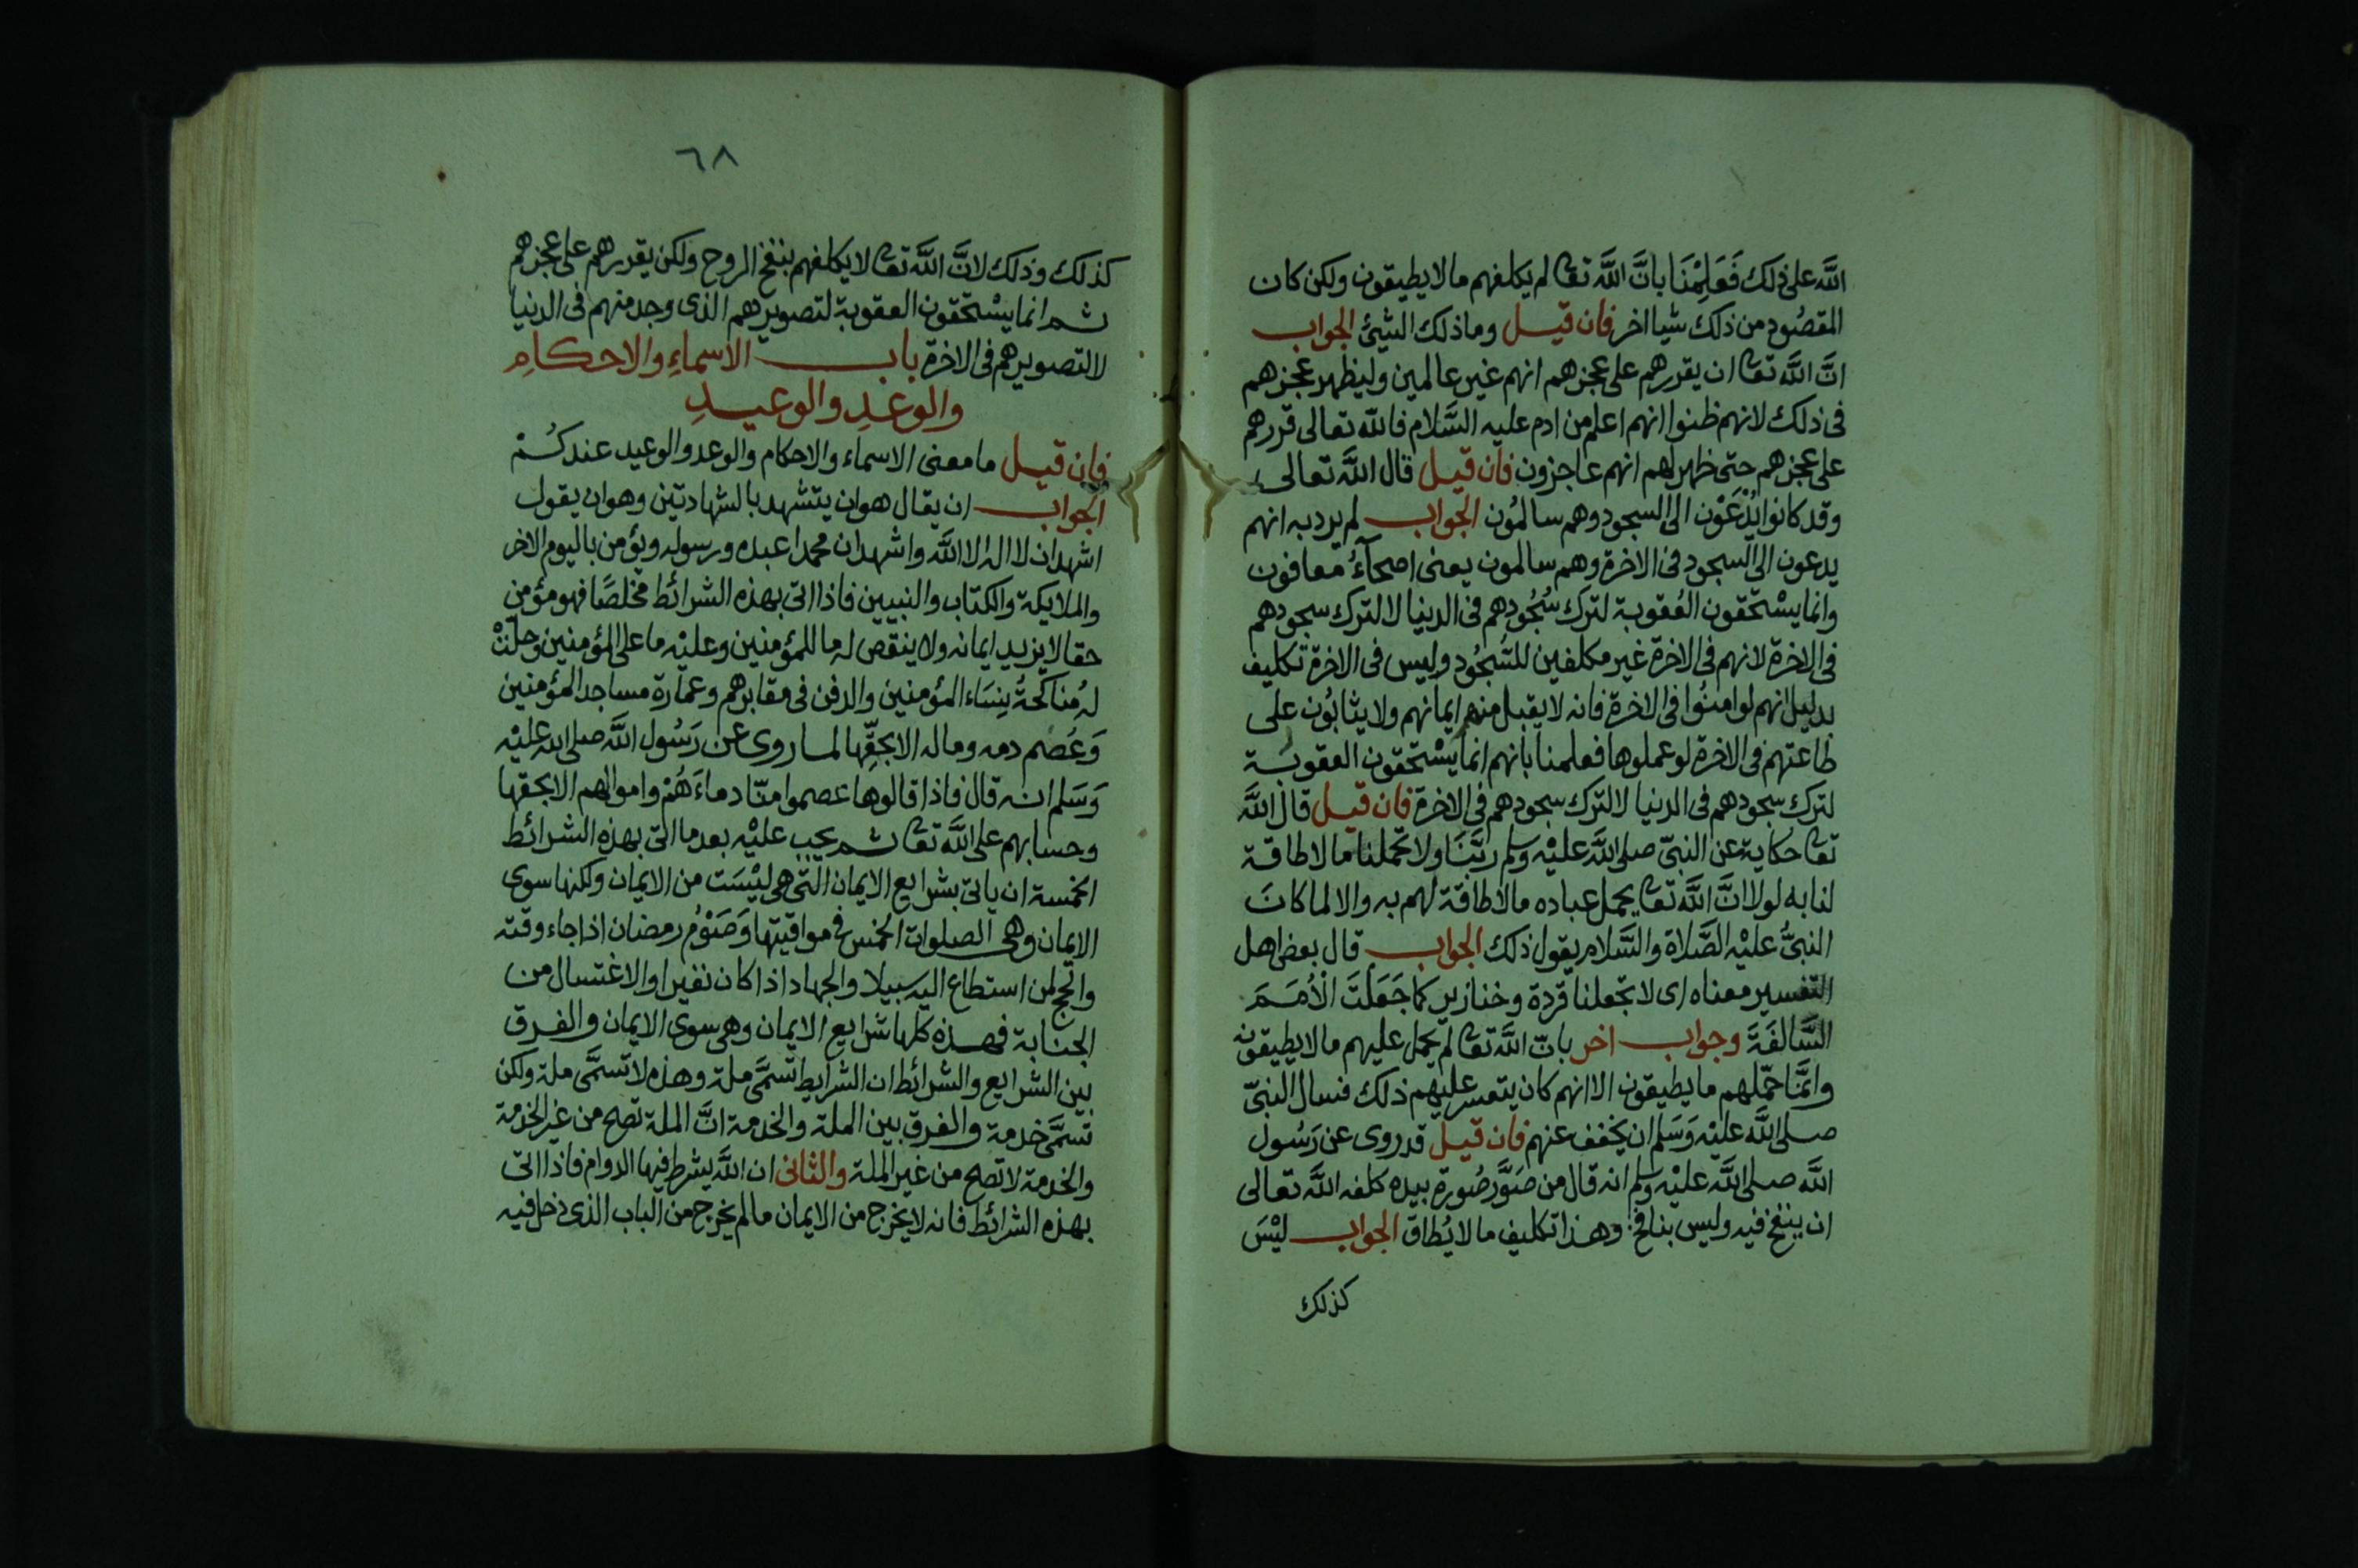 الله على ذلك فَعَلِمْنَا بانَّ اللَّه تعا لم يكلفهم ما لا يطيقون ولكن كان
المقصُود من ذلك شيا اخر فان قيل وما ذلك الشيئ الجواب
انَّ اللَّه تعا ان يقررهم على عجزهم انهم غير عالمين وليظهر عجزهم
فى ذلك لانهم ظنوا انهم اعلم من ادم عليه السَّلام فالله تعالى قررهم
على عجزهم حتى ظهر لهم انهم عاجزون فان قيل قال اللَّه تعالى
وقد كانوا يُدْعَوْن الى السجود وهم سالمُون الجواب لم يرد به انهم
يدعون الى السجود فى الاخرة وهم سالمون يعنى اصحآءُ معافون
وانما يسْتحقون العُقوبة لترك سُجُودهم فى الدنيا لا لترك سجودهم
فى الاخرة لانهم فى الاخرة غير مكلفين للسُّجُود وليس فى الاخرة تكليف
بدليل انهم لو امنُوا فى الاخرة فانه لا يقبل منهم ايمانهم ولا يثابُون على
طاعتهم فى الاخرة لو عملوها فعلمنا بانهم انما يسْتحقون العقوبة
لترك سجودهم فى الدنيا لا لترك سجودهم فى الاخرة فان قيل قال اللَّه
تعا حكاية عن النبىّ صلى اللَّه عليْه وسلم ربَّنَا ولا تحملنا ما لا طاقة
لنا به لولا انَّ اللَّه تعا يحمل عباده ما لا طاقة لهم به والا لما كانَ
النبىُّ عليْه الصَّلاة والسَّلام يقول ذلك الجواب قال بعض اهل
التفسير معناه اى لا تجعلنا قردة وخنازير كما جَعَلْتَ الْأُمَمَ
السَّالفَةَ وجواب اخر بانّ اللَّه تعا لم يحمل عليهم ما لا يطيقون
وانَّما حمّلهم ما يطيقون الا انهم كان يتعسر عليهم ذلك فسال النبىّ
صلى اللَّه عليْه وَسَلم ان يخفف عنهم فان قيل قد روى عن رَسُول
اللَّه صلى اللَّه عليْه وسلم انه قال من صَوَّر صُورة بيده كلفه اللَّه تعالى
ان ينفخ فيه وليس بنافخ وهذا تكليف ما لا يُطاق الجواب ليْسَ
كذلك
٦٨
كذلك وذلك لانَّ اللَّه تعا لا يكلفهم بنفخ الروح ولكن يقررهم على عجزهم
ثم انما يسْتحقون العقوبة لتصويرهم الذى وجد منهم فى الدنيا
لا لتصويرهم فى الاخرة باب الاسماءِ والاحكامِ
والوعدِ والوعيدِ
فان قيل ما معنى الاسماء والاحكام والوعد والوعيد عندكُمْ
الجواب ان يقال هو ان يتشهد بالشهادتين وهو ان يقول
اشهد ان لا اله الا اللَّه واشهد ان محمدا عبده ورسوله ويؤمن باليوم الاخر
والملايكة والكتاب والنبيين فاذا اتى بهذه الشرائط مخلصًا فهو مؤمن
حقا لا يزيد ايمانه ولا ينقص له ما للمؤمنين وعليْه ما على المؤمنين وحلّتْ
له مُناكحةُ نِسَاء المؤمنين والدفن فى مقابرهم وعمارة مساجد المؤمنين
وَعُصم دمه وماله الا بحقِّها لما روى عن رَسُول اللَّه صلى الله عليْه
وَسَلم انه قال فاذا قالوها عصموا منّا دماءَهُمْ واموالهم الا بحقها
وحسابهم على اللَّه تعا ثم يجب عليْه بعد ما اتى بهذه الشرائط
الخمسة ان ياتى بشرايع الايمان التى هى ليْسَت من الايمان ولكنها سوى
الايمان وهى الصلوات الخمس فى مواقيتها وَصَوْمُ رمضان اذا جاء وقته
والحج لمن استطاع اليه سبيلا والجهاد اذا كان نفيرا والاغتسال من
الجنابة فهذه كلها شرايع الايمان وهى سوى الايمان والفرق
بين الشرايع والشرائط ان الشرايط تسمَّى ملة وهذه لا تسمَّى ملة ولكن
تسمَّى خدمة والفرق بين الملة والخدمة انَّ الملة تصح من غير الخدمة
والخدمة لا تصح من غير الملة والثانى ان اللَّه يشرط فيها الدوام فاذا اتى
بهذه الشرائط فانه لا يخرج من الايمان ما لم يخرج من الباب الذى دخل فيه